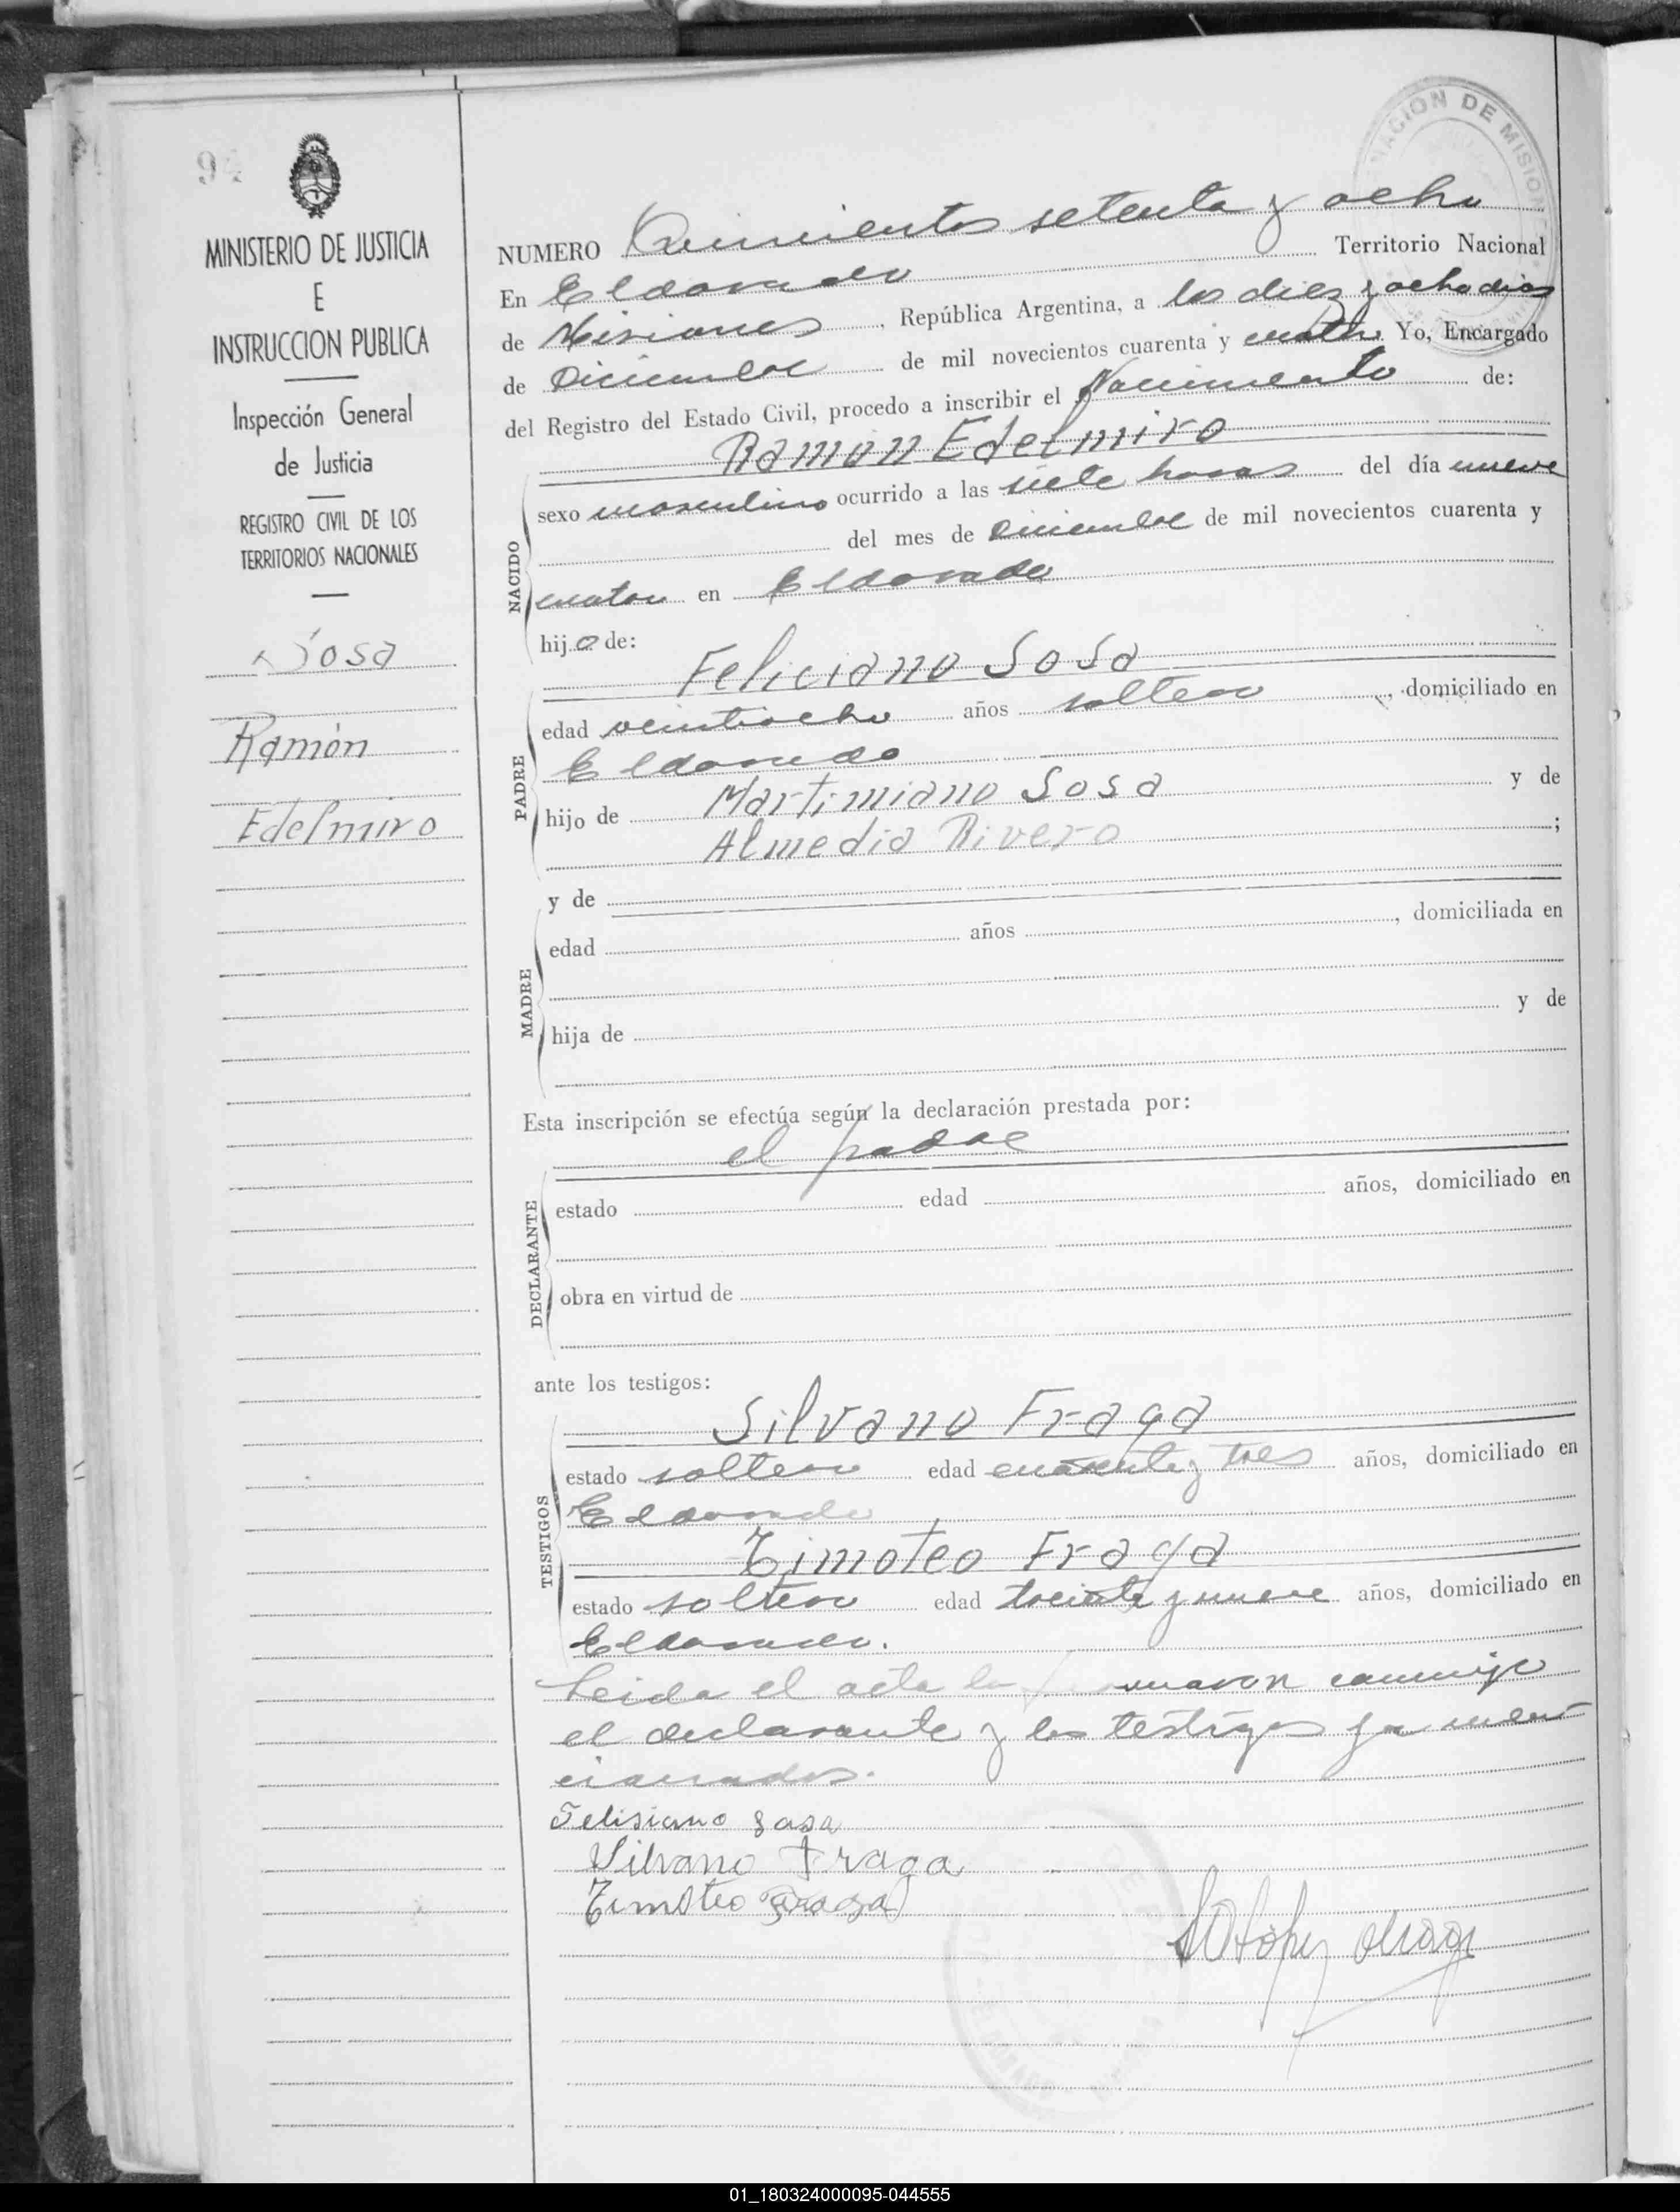 94
MINISTERIO DE JUSTICIA
E
INSTRUCCION PUBLICA
Inspección General
de Justicia
REGISTRO CIVIL DE LOS
TERRITORIOS NACIONALES
Sosa
Ramón
Edelmiro
NACION DE MISIONES
NUMERO Quinientos setenta y ocho
En Eldorado Territorio Nacional
de Misiones, República Argentina, a los diez y ocho dias
de Diciembre de mil novecientos cuarenta y cuatro. Yo, Encargado
del Registro del Estado Civil, procedo a inscribir el Nacimiento de:
Ramon Edelmiro
NACIDO
sexo masculino ocurrido a las siete horas del día nueve
del mes de Diciembre de mil novecientos cuarenta y
cuatro en Eldorado
hijo de:
Feliciano Sosa
PADRE
edad veintiocho años soltero, domiciliado en
Eldorado
hijo de Martimiano Sosa y de
Almedia Rivero;
y de
MADRE
edad años, domiciliada en
hija de y de
Esta inscripción se efectúa según la declaración prestada por:
el padre
DECLARANTE
estado edad años, domiciliado en
obra en virtud de
ante los testigos:
Silvano Fraga
TESTIGOS
estado soltero edad cuarenta y tres años, domiciliado en
Eldorado
Timoteo Fraga
estado soltero edad treinta y nueve años, domiciliado en
Eldorado.
Leida el acta la firmaron conmigo
el declarante y los testigos ya men
cionados.
Felisiano Sosa
Silvano Fraga
Timoteo Fraga
01_180324000095-044555